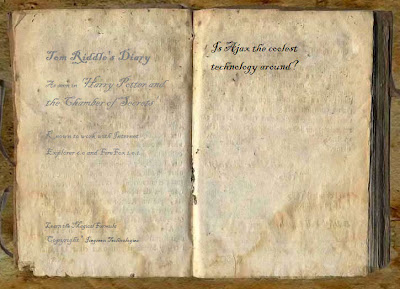 Tom Riddle's Diary
As seen in Harry Potter and
the Chamber of Secrets
Known to work with Internet
Explorer 6.0 and FireFox
Learn the Magical Formula
Copyright Technologies
Is Ajax the coolest
technology around?